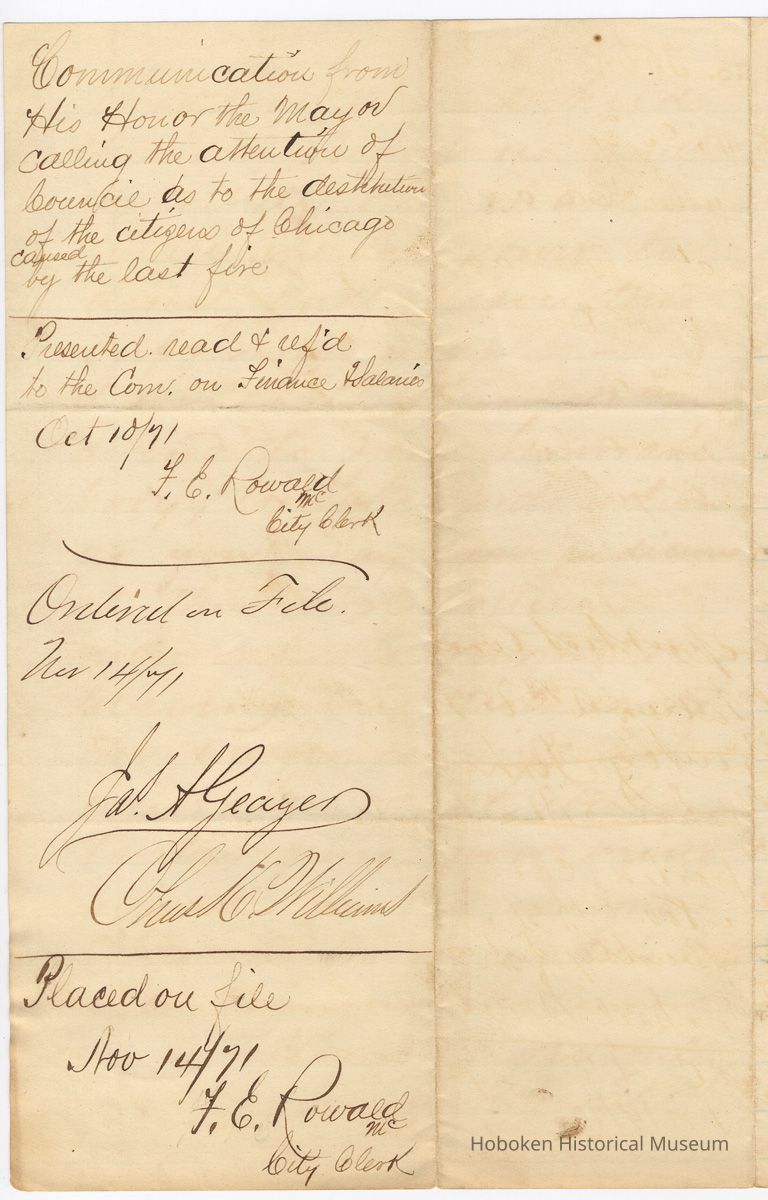 Communication from
His Honor the Mayor
calling the attention of
Council as to the destitution
of the citizens of Chicago
caused
by the last fire
Presented. read & ref'd
to the Com. on Finance & Salaries
Oct 10/71
F. E. Rowald
Mc
City Clerk
Ordered on File.
Nov 14/71
Jas. A Geayer
Chas K. Williams
Placed on file
Nov 14/71
F. E. Rowald
Mc
City Clerk
Hoboken Historical Museum